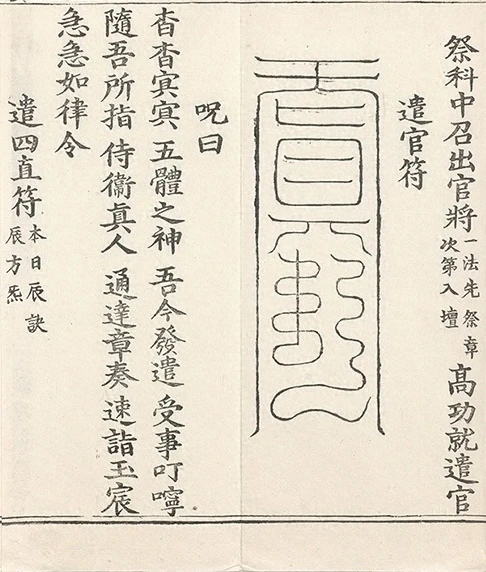 祭科中召出官將一法先祭章次第入壇高功就遣官
遣官符
呪曰
杳杳冥冥 五體之神 吾今發遣 受事叮嚀
隨吾所指 侍衞眞人 通達章奏 速詣玉宸
急急如律令
遣四直符本日辰訣辰方炁